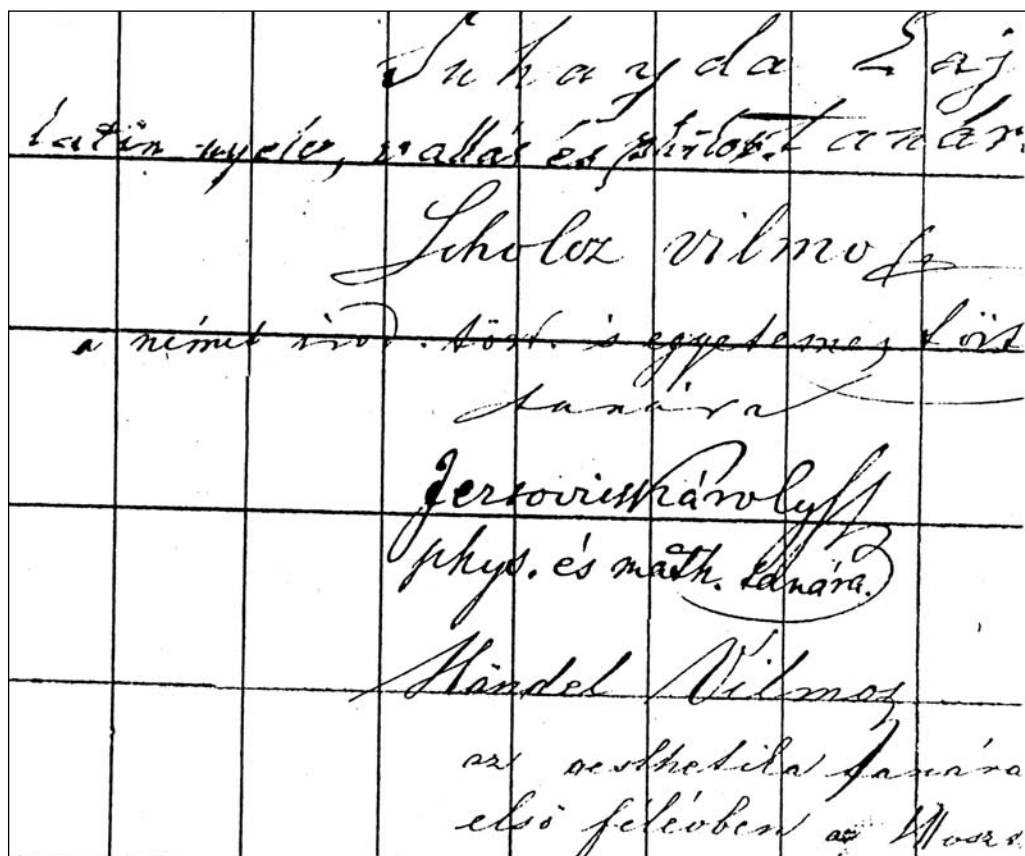 Suhayda Laj
latin nyelv, vallás és philos. tanár
Scholcz Vilmos
a német irod. tört. és egyetemes tört
tanára
Jezsovics Károly
phys. és math. tanára.
Händel Vilmos
az aesthetika tanára
első félévben az